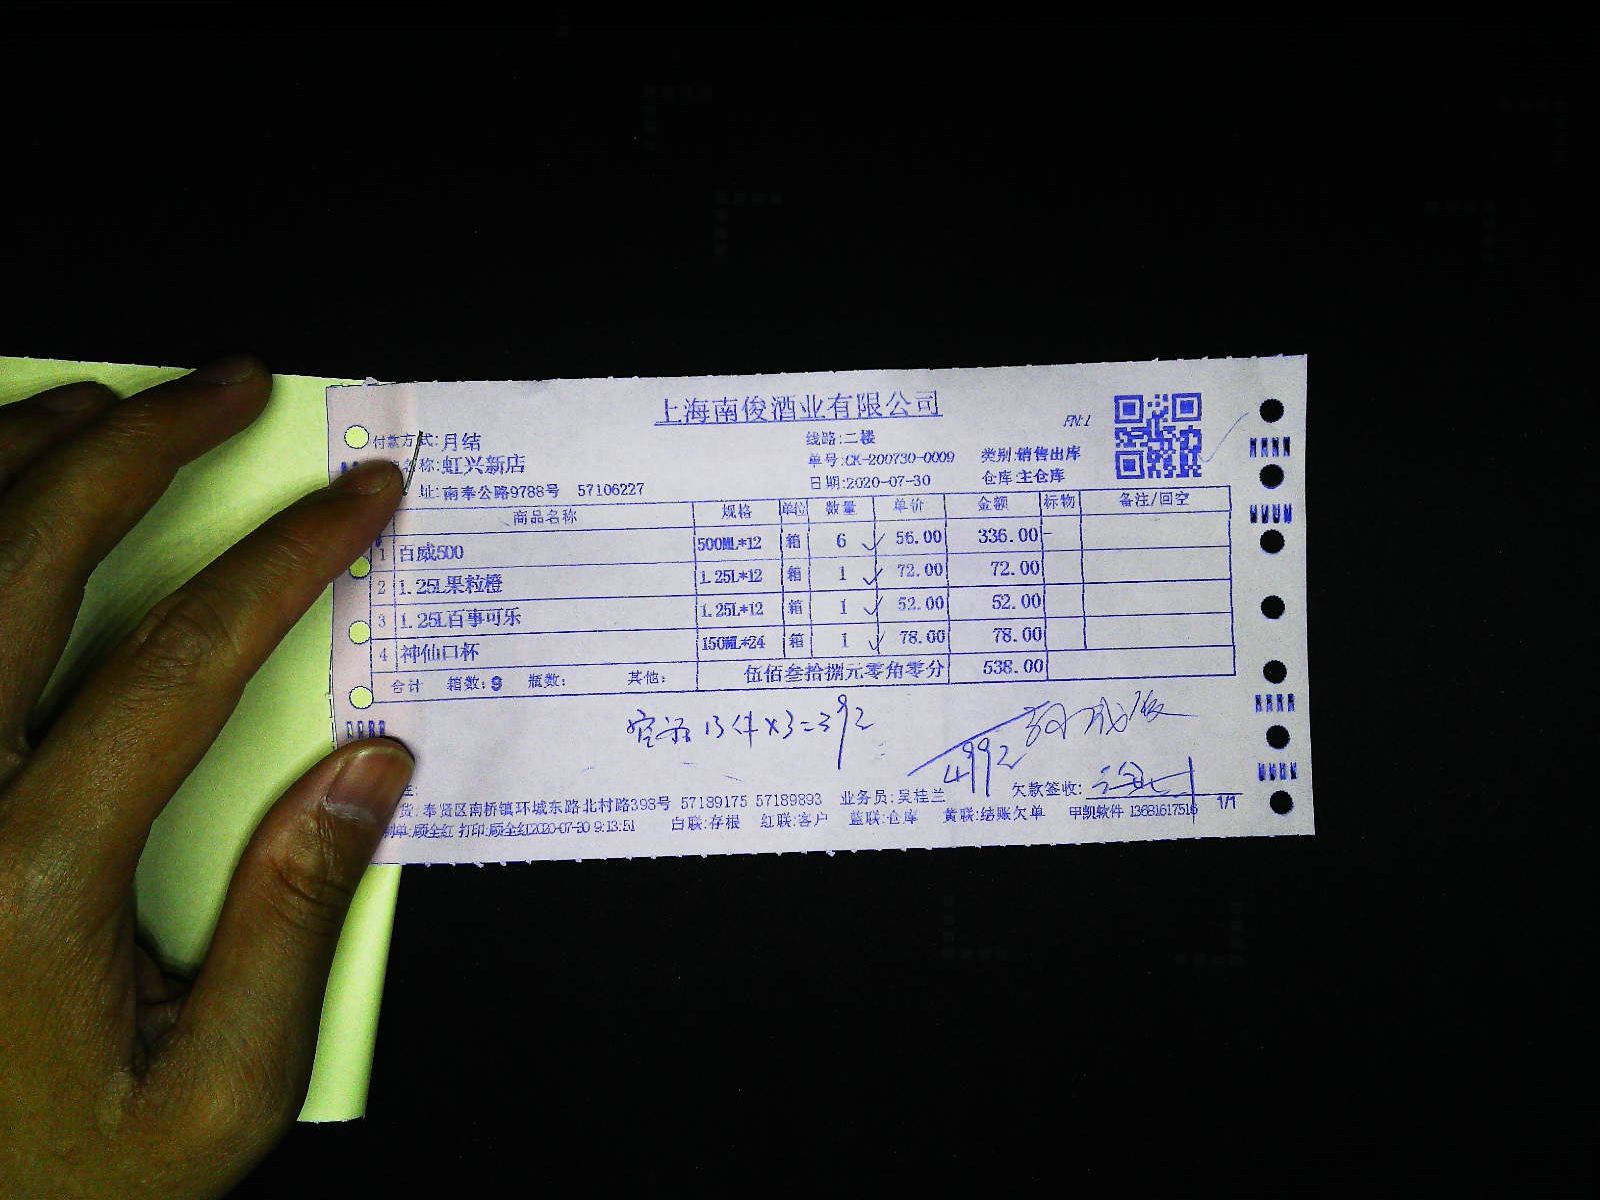 上海南俊酒业有限公司
PN:1
付款方式:月结 线路:二楼
名称:虹兴新店 单号:CK-200730-0009 类别:销售出库
址:南奉公路9788号 57106227 日期:2020-07-30 仓库:主仓库
商品名称 规格 单位 数量 单价 金额 标物 备注/回空
1 百威500 500ML*12 箱 6 56.00 336.00
2 1.25L果粒橙 1.25L*12 箱 1 72.00 72.00
3 1.25L百事可乐 1.25L*12 箱 1 52.00 52.00
4 神仙口杯 150ML*24 箱 1 78.00 78.00
合计 箱数:9 瓶数: 其他: 伍佰叁拾捌元零角零分 538.00
13件×3=392
4992
欠款签收:
货:奉贤区南桥镇环城东路北村路398号 57189175 57189893 业务员:吴桂兰
制单:顾全红 打印:顾全红2020-07-30 9:13:51 白联:存根 红联:客户 蓝联:仓库 黄联:结账欠单 甲凯软件 13681617516 1/1